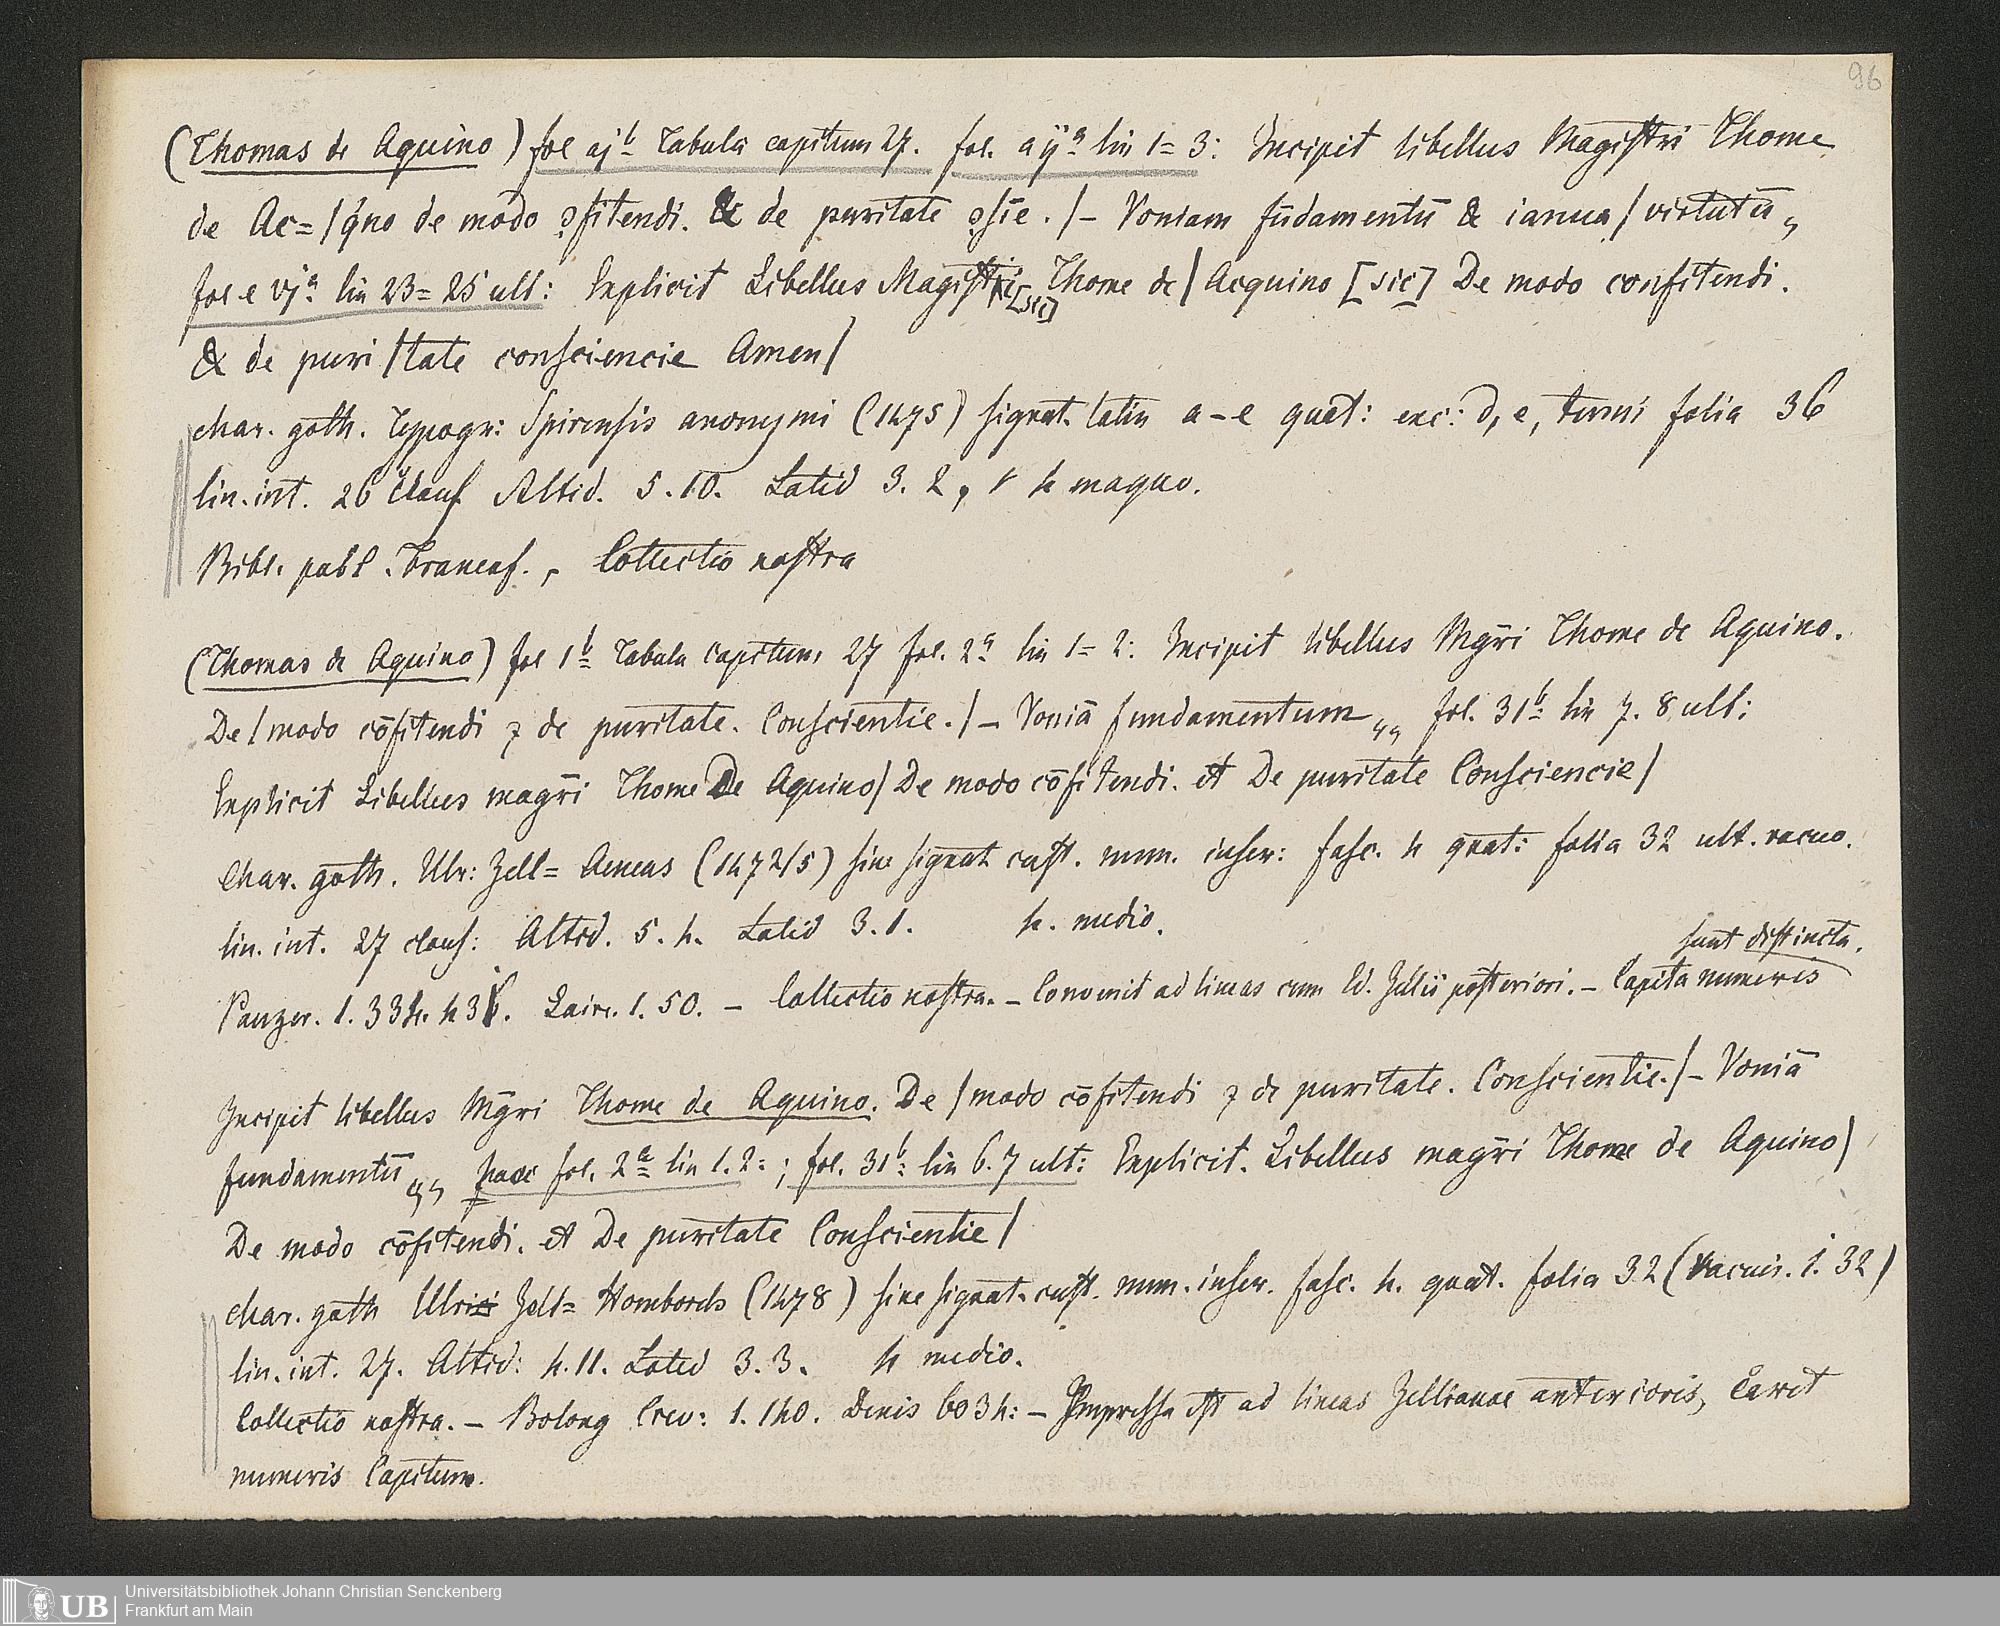 96
(Thomas de Aquino) fol aj b Tabula capitum 27. fol. a ij a lin 1=3: Incipit libellus Magistri Thome
de Ac=/q̇no de modo ꝯfitendi. & de puritate ꝯsīe. /– Voniam fūdamentū & ianua / virtutū„
fol e vj a lin 23=25 ult: Explicit Libellus Magistri [sic] Thome de / Acquino [sic] De modo confitendi.
& de puri/tate consciencie Amen/
char. goth. Typogr: Spirensis anonymi (1475) signat. latin a–e quat: exc: d, e, terni folia 36
lin. int. 26 clauf Altid. 5.10. Latid 3.2, 4 magno.
Bibl. publ. Francof., Collectio nostra
(Thomas de Aquino) fol 1 b Tabula capitum 27 fol. 2 a lin 1=2: Incipit libellus Mgr̄i Thome de Aquino.
De / modo cōfitendi ⁊ de puritate. Conscientie. /– Voniā fundamentum„„ fol. 31 b lin 7. 8 ult:
Explicit Libellus magr̄i Thome De Aquino / De modo cōfitendi. et De puritate Consciencie /
Char. goth. Ulr: Zell= Aeneas (1472/5) sine signat cust. num. inser: fasc. 4 quat: folia 32 ult. vacuo.
lin. int. 27 clauf: Altid. 5.4. Latid 3.1. 4. medio.
sunt distincta.
Panzer. 1. 334. 436. Laire. 1. 50. – Collectio nostra. – Convenit ad lineas cum Ed. Zellii posteriori. – Capita numeris
Incipit libellus Mgr̄i Thome de Aquino. De / modo cōfitendi ⁊ de puritate. Conscientie. /– Voniā
fundamentū„„ haec fol. 2 a lin 1.2: ; fol. 31 b: lin 6.7 ult: Explicit. Libellus magr̄i Thome de Aquino /
De modo cōfitendi. et De puritate Conscientie /
char. goth Ulrici Zell= Homborch (1478) sine signat. cust. num. inser. fasc. 4. quat. folia 32 (vacuis. 1. 32)
lin. int. 27. Altid: 4.11. Latid 3.3. 4 medio.
Collectio nostra. – Bolong Crev: 1. 140. Denis 6034: – Impressa est ad lineas Zellianae anterioris, Caret
numeris Capitum.
UB Universitätsbibliothek Johann Christian Senckenberg
Frankfurt am Main